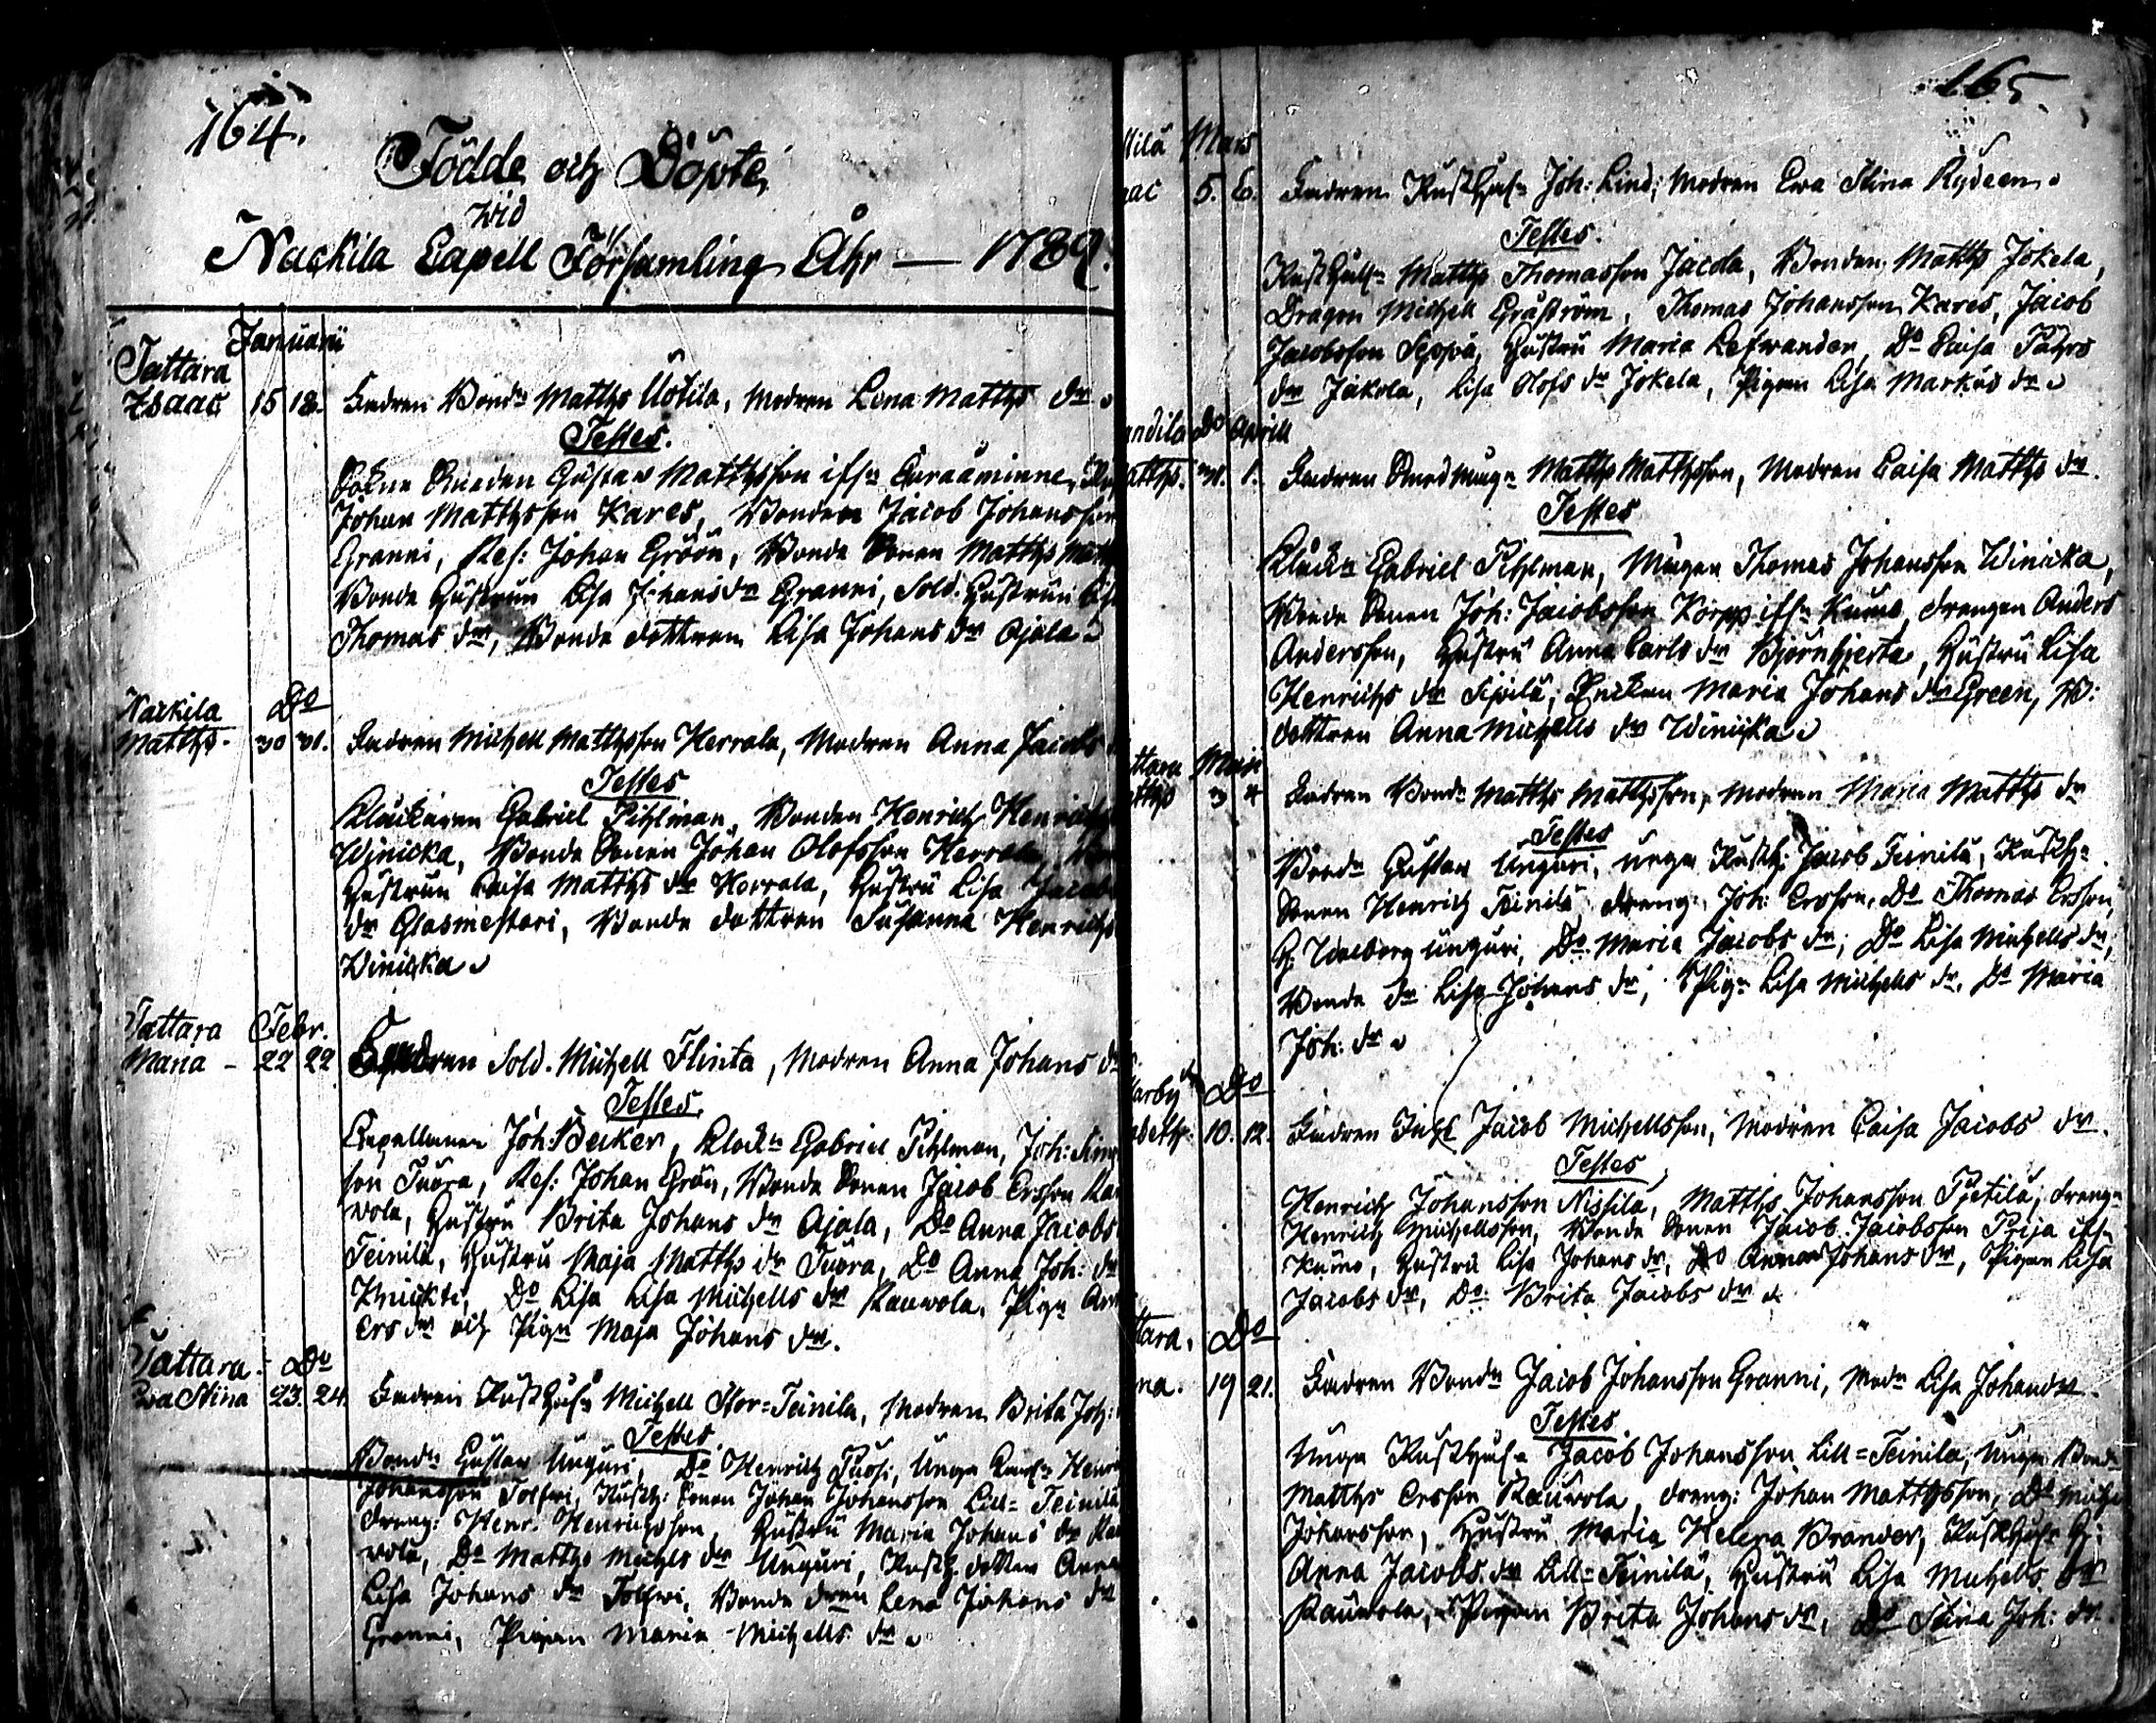 164.
Födde och Döpte,
wid
Nackila Capell Församling Åhr — 1789.
Januarii
Tattara
Isaac 15 18. Fadren Bond: Matths Uotila, Modren Lena Matths dr
Testes.
Gustav Matthsson ifrn Euraåminne,
Johan Matthsson Kares, Bonden Jacob Johansson
Granni, Ref: Johan Gröön, Bonde Sonen Matths
Bonde Hustrun Lisa Johans dr Granni, Sold. Hustrun
Thomas dr, Bonde dottren Lisa Johans dr Ajala
Nackila Do
Matths. 30 31. Fadren Michell Matthsson Herrala, Modren Anna Jacobs
Testes
Klockaren Gabriel Pihlman, Bonden Henrich
Winicka, Bonde Sonen Johan Olofsson Herrala,
Hustrun Caisa Matths dr Herrala, Hustru Lisa Jacobs
dr Glasmestari, Bonde dottren Susanna Henrichs
Winicka
Tattara Febr.
Maria - 22 22 Fadren Sold. Michell Flinta, Modren Anna Johans dr
Testes.
Capellanen Joh: Becker, Klockn Gabriel Pihlman, Joh:
son Tuora, Ref: Johan Grön, Bonde Sonen Jacob Ersson
wola, Hustru Brita Johans dr Ajala, Do Anna Jacobs
Teinilä, Hustru Maja Matths dr Tuora, Do Anna Joh: dr
Do Lisa Lisa Michells dr Kauwola, Pign
Ers dr och Pign Maja Johans dr.
Tattara. Do
Ewa Stina 23. 24. Fadren Rusthålln Michell Stor=Teinila, Modren Brita Joh:
Testes.
Bondn Gustav Unguri, Do Henrich Puosi, Unga
Johansson Tolfwi, Rusth: Sonen Johan Johansson Lill=Teinilä
dreng: Henr. Henrichsson, Hustru Maria Johans dr
wola, Do Matths Michels dr Unguri, Rusth dotter Anna
Lisa Johans dr Tolfwi, Bonde dren Lena Johans dr
Granni, Pigan Maria Michells dr
165.
Mars
5. 6. Fadren Rusthålln Joh: Lind, Modren Ewa Stina Rydeen
Testes.
Rusthålln Matths Thomasson Jacola, Bonden Matths Jokela,
Dragon Michell Gråström, Thomas Johansson Kares, Jacob
Jacobsson Seppä, Hustru Maria Lefwander, Do Caisa Pährs
dr Jakola, Lisa Olofs dr Jokela, Pigan Lisa Markus dr
Do Aprill
31. 1. Fadren Matths Matthsson, Modren Caisa Matths dr.
Testes
Klockn Gabriel Pihlman, Mågen Thomas Johansson Winicka,
Bonde Sonen Joh: Jacobsson Korpp ifrn Kumo, drengen Anders
Andersson, Hustru Anna Carls dr Björnhjerta, Hustru Lisa
Henrichs dr Sipilä, Maria Johans dr Green, B:
dottren Anna Michells dr Winicka
Maji
3 4 Fadren Bondn Matths Matthsson, Modren Maria Matths dr
Testes
Bondn Gustav Unguri, unga Rusth: Jacob Teinilä, Rusthn
Sonen Henrich Teinilä, dreng: Joh: Ersson, Do Thomas Ersson,
H: Walborg Unguri, Do Maria Jacobs dr, Do Lisa Michells dr,
Bonde dr Lisa Johans dr, Pign Lisa Michells dr, Do Maria
Joh: dr
Do
10. 12. Fadren Jacob Michellsson, Modren Caisa Jacobs dr.
Testes
Henrich Johansson Nissilä, Matths Johansson Pietilä, drengn
Henrich Michellsson, Bonde Sonen Jacob Jacobsson ifrn
Kumo, Hustru Lisa Johans dr, Do Anna Johans dr, Pigan Lisa
Jacobs dr, Do Brita Jacobs dr
Do
19 21. Fadren Bondn Jacob Johansson Granni, Modn Lisa Johans dr.
Testes
Unga Rusthålln Jacob Johansson Lill=Teinila, Unga Bondn
Matths Ersson Kauwola, dreng: Johan Matthsson, Do
Johansson, Hustru Maria Helena Brander, Rusthålln H:
Anna Jacobs dr Lill=Teinilä, Hustru Lisa Michells dr
Kauwola, Pigan Brita Johans dr, Do Stina Joh: dr.